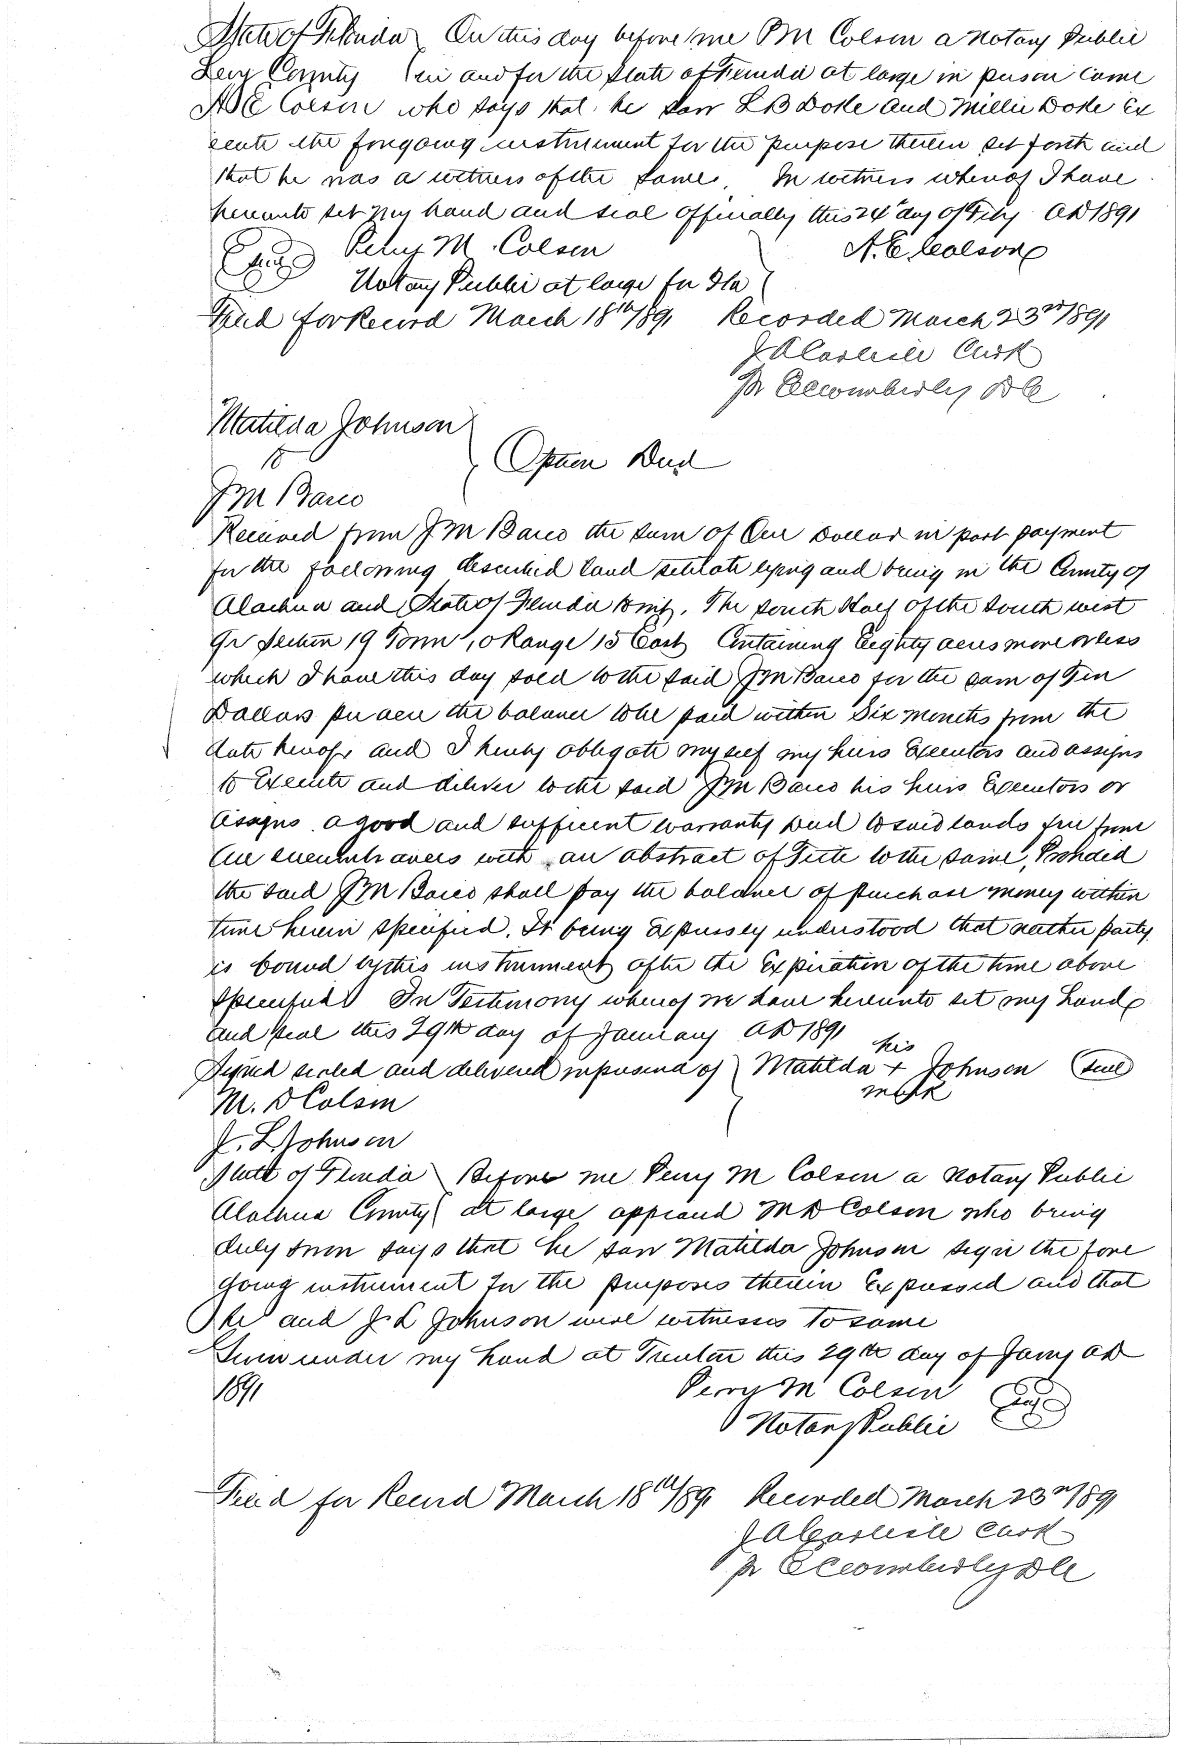 State of Florida } On this day before me P M Colson a Notary Public
Levy County } in and for the State of Florida at large in person came
A E Colson who says that he saw L B Doke and Millie Doke Ex
ecute the foregoing instrument for the purpose therein set forth and
that he was a witness of the same. In witness whereof I have
hereunto set my hand and seal officially this 24th day of Feby AD 1891
Seal Perry M. Colson A. E. Colson
Notary Public at large for Fla
Filed for Record March 18th/891 Recorded March 23rd/891
J A Carlisle Clerk
Pr DC
Matilda Johnson
to } Option Deed
J M Barco
Received from J M Barco the sum of One Dollar in part payment
for the following described land situate lying and being in the County of
Alachua and State of Florida towit. The South Half of the South west
qr Section 19 Town 10 Range 15 East Containing Eighty acres more or less
which I have this day sold to the said J M Barco for the sum of Ten
Dollars per acre the balance to be paid within Six months from the
date hereof, and I hereby obligate myself my heirs Executors and assigns
to Execute and deliver to the said J M Barco his heirs Executors or
Assigns a good and sufficient warranty Deed to said lands free from
all encumbrances with an abstract of Title to the same, Provided
the said J M Barco shall pay the balance of purchase money within
time herein specified. It being Expressly understood that neither party
is bound by this instrument after the Expiration of the time above
specified In Testimony whereof we have hereunto set my hand
and seal this 29th day of January AD 1891
his
Signed sealed and delivered in presend of } Matilda + Johnson Seal
M. D Colson mark
J. L Johnson
State of Florida } Before me Perry M Colson a Notary Public
Alachua County } at large appeard M D Colson who being
duly sworn says that he saw Matilda Johnson sign the fore
going instrument for the purposes therein Expressed and that
he and J. L Johnson were witnesses to same
Given under my hand at Trenton this 29th day of Jany AD
1891 Perry M Colson Seal
Notary Public
Filed for Record March 18th/891 Recorded March 23rd/891
J A Carlisle Clerk
Pr DC